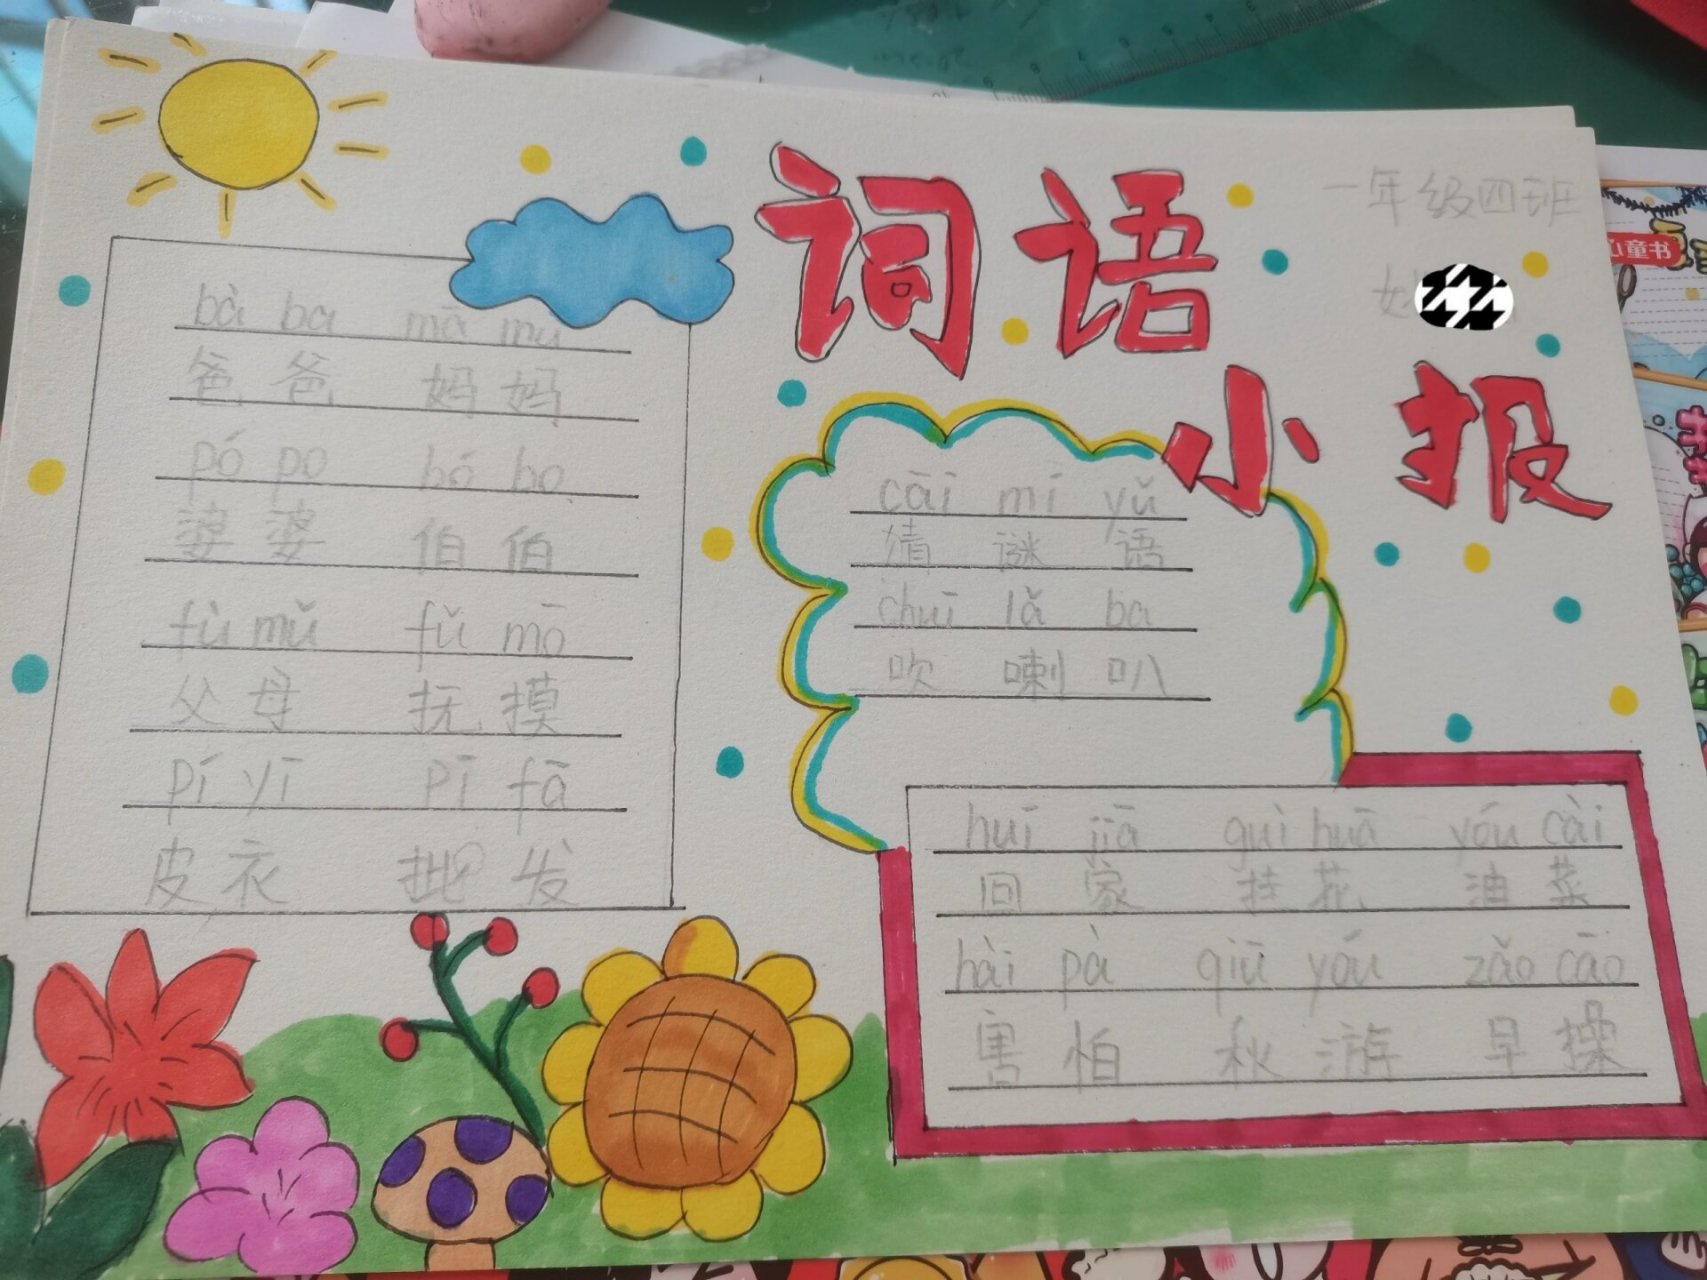 词语
小报
一年级四班
bà ba mā mɑ
爸爸 妈妈
pó po bó bo
婆婆 伯伯
fù mǔ fǔ mō
父母 抚摸
pí yī pī fā
皮衣 批发
cāi mí yǔ
猜 谜 语
chuī lǎ ba
吹 喇 叭
huí jiā guì huā yóu cài
回 家 挂 花 油 菜
hài pà qiū yóu zǎo cāo
害 怕 秋 游 早 操
童书